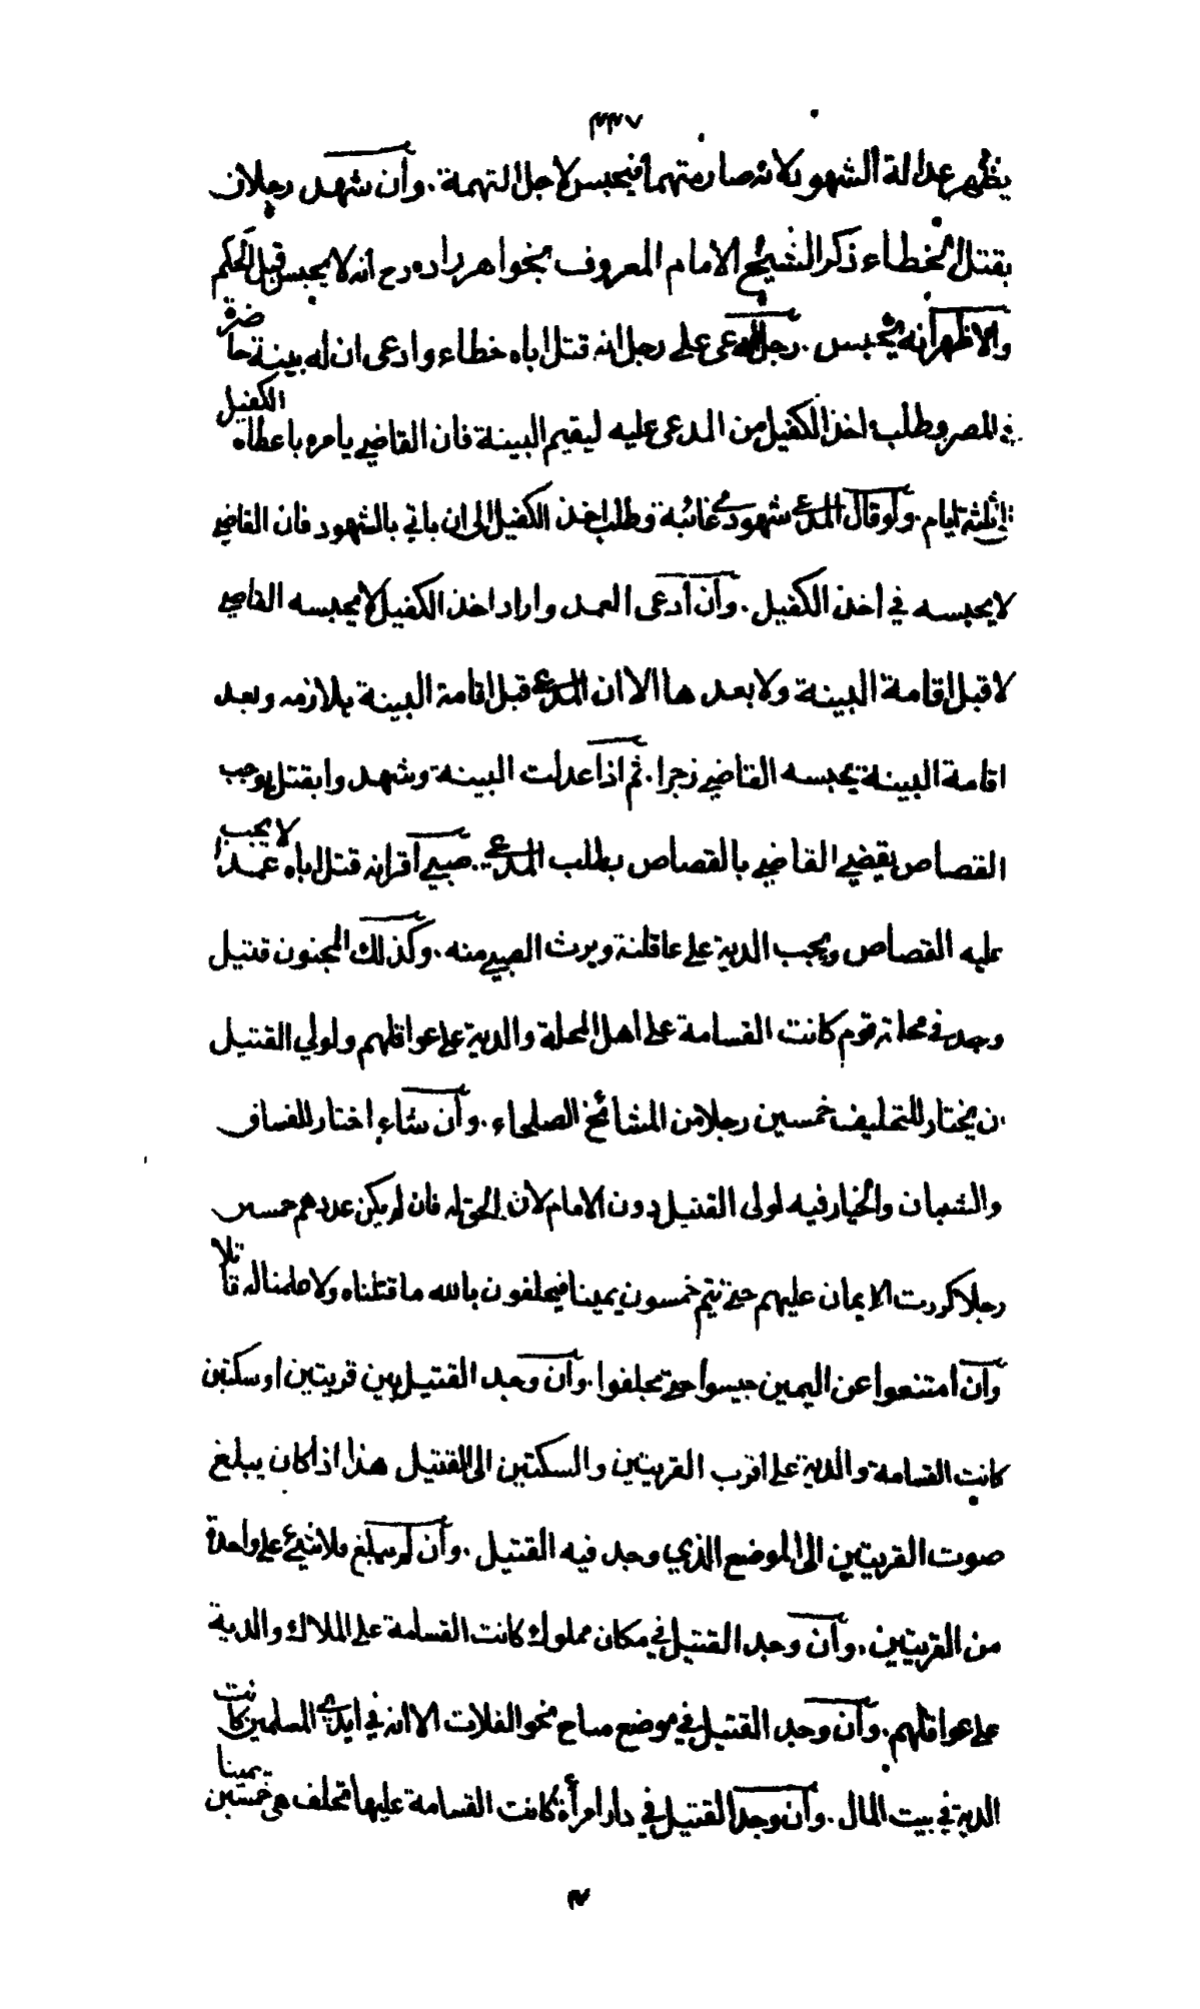 ٤٤٧
يظهر عدالة الشهود لانه صار متهما فيحبس لاجل التهمة . وان شهد رجلان
بقتل الخطاء ذكر الشيخ الامام المعروف بخواهر زاده رح انه لا يحبس قبل الحكم
والاظهر انه يحبس . رجل ادعى على رجل انه قتل اباه خطاء وادعى ان له بينة حاضرة
في المصر وطلب اخذ الكفيل من المدعى عليه ليقيم البينة فان القاضي يامره باعطاء الكفيل
الى ثلثة ايام . ولو قال المدعي شهودي غائبة وطلب اخذ الكفيل الى ان ياتي بالشهود فان القاضي
لا يحبسه في اخذ الكفيل . وان ادعى العمد واراد اخذ الكفيل لا يحبسه القاضي
لا قبل اقامة البينة ولا بعد ها الا ان المدعي قبل اقامة البينة يلازمه وبعد
اقامة البينة يحبسه القاضي زجرا . ثم اذا عدلت البينة وشهد وا بقتل يوجب
القصاص يقضي القاضي بالقصاص بطلب المدعي . صبي اقر انه قتل اباه عمدا لا يجب
عليه القصاص ويجب الدية على عاقلته ويرث الصبي منه . وكذلك المجنون قتيل
وجد في محلة قوم كانت القسامة على اهل المحلة والدية على عواقلهم ولولي القتيل
ان يختار للتحليف خمسين رجلا من المشائخ الصلحاء . وان شاء اختار للفساق
والشبان والخيار فيه لولى القتيل دون الامام لان الحق له فان لم يكن عددهم خمسين
رجلا كررت الايمان عليهم حتى تتم خمسون يمينا فيحلفون بالله ما قتلناه ولا علمنا له قاتلا
وان امتنعوا عن اليمين حبسوا حتى يحلفوا . وان وجد القتيل بين قريتين او سكتين
كانت القسامة والدية على اقرب القريتين والسكتين الى القتيل هذا اذا كان يبلغ
صوت القريتين الى الموضع الذي وجد فيه القتيل . وان لم يبلغ فلا شيء على واحدة
من القريتين . وان وجد القتيل في مكان مملوك كانت القسامة على الملاك والدية
على عواقلهم . وان وجد القتيل في موضع مباح نحو الفلات الا انه في ايدي المسلمين كانت
الدية في بيت المال . وان وجد القتيل في دار امرأة كانت القسامة عليها تحلف هي خمسين يمينا